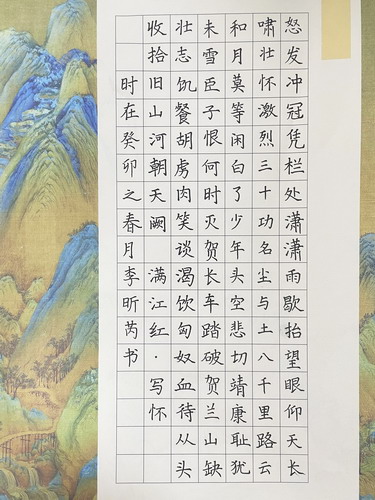 怒发冲冠凭栏处潇潇雨歇抬望眼仰天长
啸壮怀激烈三十功名尘与土八千里路云
和月莫等闲白了少年头空悲切靖康耻犹
未雪臣子恨何时灭贺长车踏破贺兰山缺
壮志饥餐胡虏肉笑谈渴饮匈奴血待从头
收拾旧山河朝天阙 满江红·写怀
时在癸卯之春月李昕芮书